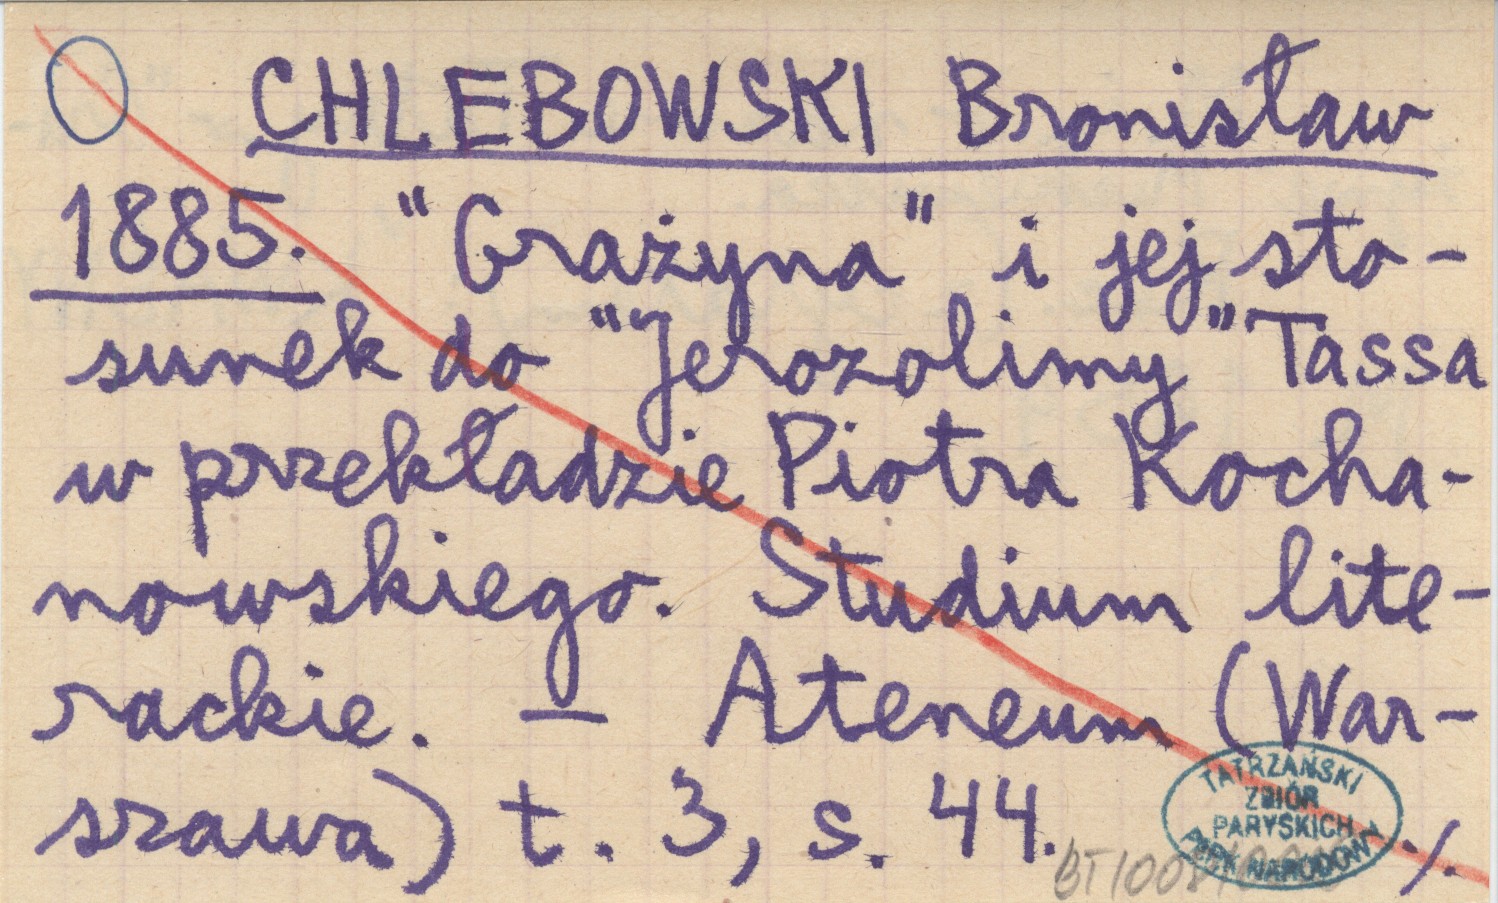 CHLEBOWSKI Bronisław
1885. "Grażyna" i jej sto-
sunek do "Jerozolimy" Tassa
w przekładzie Piotra Kocha-
nowskiego. Studium lite-
rackie. — Ateneum (War-
szawa) t. 3, s. 44. ./.
TATRZAŃSKI
ZBIÓR
PARYSKICH
PARK NARODOWY